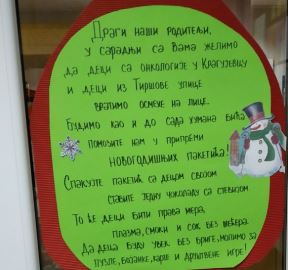 Драги наши родитељи,
у сарадњи са Вама желимо
да деци са онкологије у Крагујевцу
и деци из Тиршове улице
вратимо осмехе на лице.
Будимо као и до сада хумана бића
помозите нам у припреми
новогодишњих пакетића!
Спакујте пакетић са децом својом
ставите једну чоколаду са стевијом
То ће деци бити права мера,
плазма, смоки и сок без шећера.
Да деца буду увек без бриге, молимо за
пузле, бојанке, карте и друштвене игре!